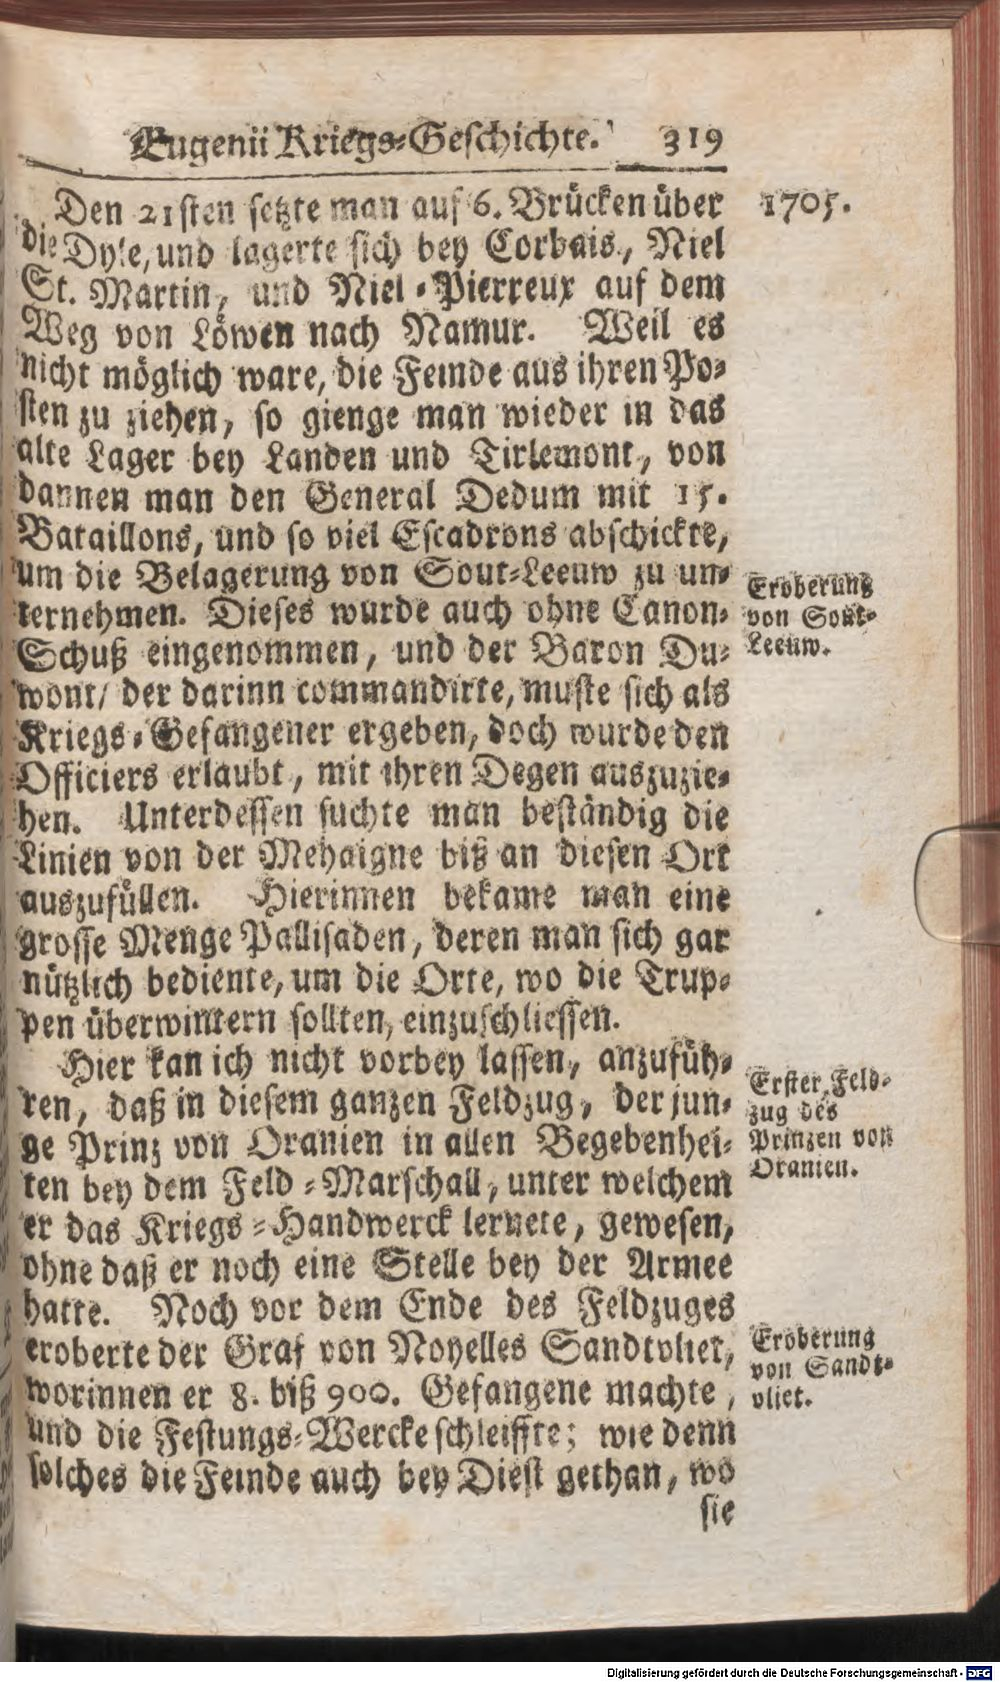 Eugenii Kriegs-Geschichte. 319
Den 21sten setzte man auf 6. Brücken über
1705.
die Dyle, und lagerte sich bey Corbais, Niel
St. Martin, und Niel-Pierreux auf dem
Weg von Löwen nach Namur. Weil es
nicht möglich ware, die Feinde aus ihren Po-
sten zu ziehen, so gienge man wieder in das
alte Lager bey Landen und Tirlemont, von
dannen man den General Dedum mit 15.
Bataillons, und so viel Escadrons abschickte,
um die Belagerung von Sout-Leeuw zu un-
ternehmen. Dieses wurde auch ohne Canon-
Schuß eingenommen, und der Baron Du-
wont/ der darinn commandirte, muste sich als
Kriegs-Gefangener ergeben, doch wurde den
Officiers erlaubt, mit ihren Degen auszuzie-
hen. Unterdessen suchte man beständig die
Linien von der Mehaigne biß an diesen Ort
auszufüllen. Hierinnen bekame man eine
grosse Menge Pallisaden, deren man sich gar
nützlich bediente, um die Orte, wo die Trup-
pen überwintern sollten, einzuschliessen.
Eroberung
von Sout-
Leeuw.
Hier kan ich nicht vorbey lassen, anzufüh-
ren, daß in diesem ganzen Feldzug, der jun-
ge Prinz von Oranien in allen Begebenhei-
ten bey dem Feld-Marschall, unter welchem
er das Kriegs-Handwerck lernete, gewesen,
ohne daß er noch eine Stelle bey der Armee
hatte. Noch vor dem Ende des Feldzuges
eroberte der Graf von Noyelles Sandtvliet,
worinnen er 8. biß 900. Gefangene machte,
und die Festungs-Wercke schleiffte; wie denn
solches die Feinde auch bey Diest gethan, wo
sie
Erster Feld-
zug des
Prinzen von
Oranien.
Eroberung
von Sandt-
vliet.
Digitalisierung gefördert durch die Deutsche Forschungsgemeinschaft - DFG